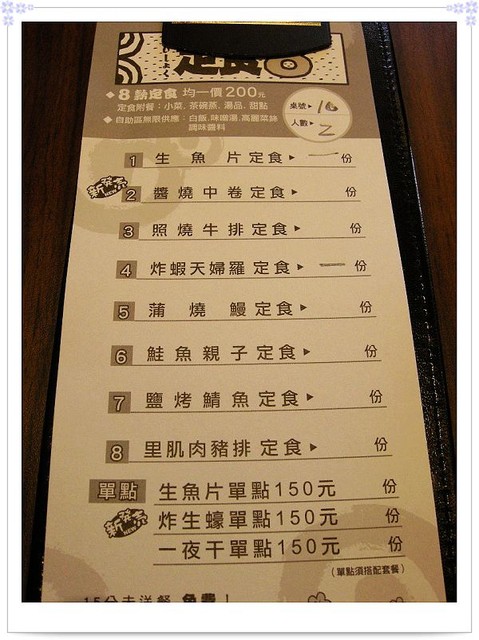 定食8
◆8款定食 均一價200元
定食附餐：小菜, 茶碗蒸, 湯品, 甜點
◆自助區無限供應：白飯, 味噌湯, 高麗菜絲
調味醬料
桌號▸ 16
人數▸ 2
1 生魚片定食▸ 一 份
新菜
2 醬燒中卷定食▸ 份
3 照燒牛排定食▸ 份
4 炸蝦天婦羅定食▸ 一 份
5 蒲燒鰻定食▸ 份
6 鮭魚親子定食▸ 份
7 鹽烤鯖魚定食▸ 份
8 里肌肉豬排定食▸ 份
單點 生魚片單點150元 份
新菜 炸生蠔單點150元 份
一夜干單點150元 份
(單點須搭配套餐)